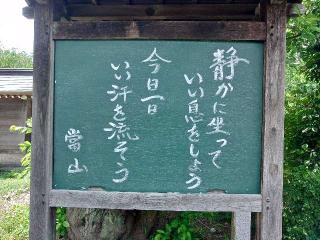 静かに坐って
いい息をしよう
今日一日
いい汗を流そう
當山